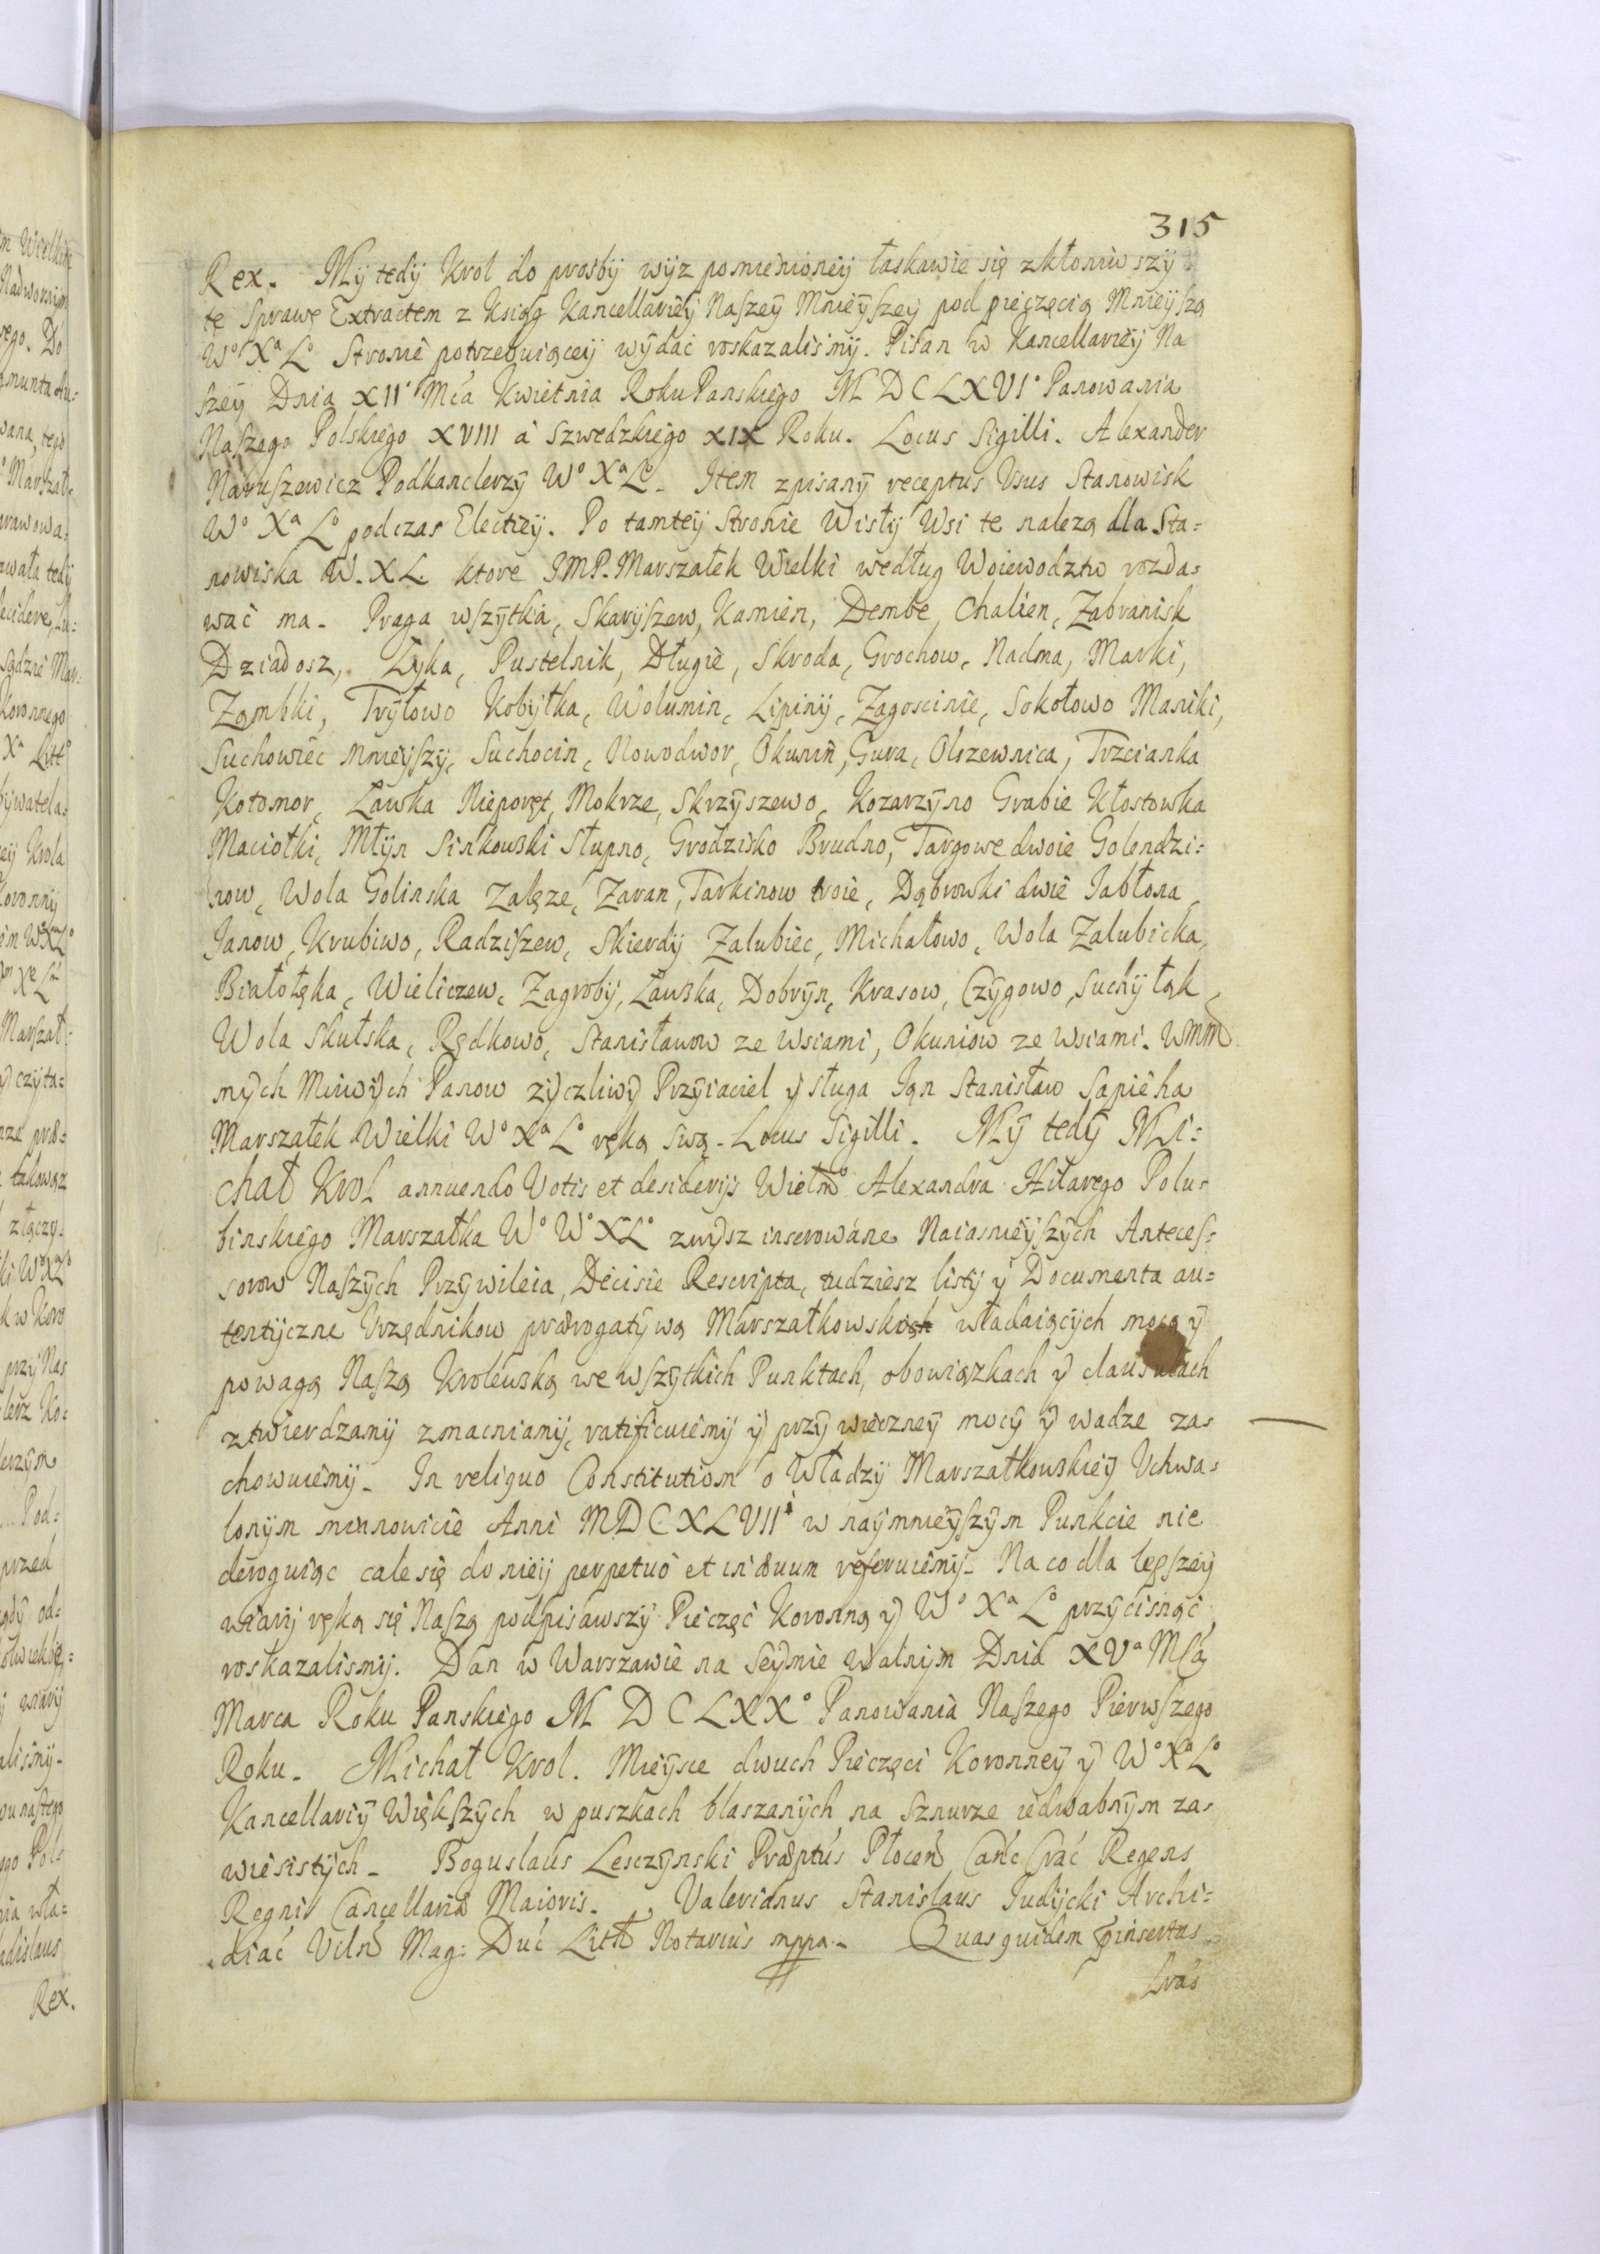 315
Rex. My tedy Krol do prosby wyz pomienioney łaskawie się zkłoniwszy
tę Sprawę Extractem z Ksiąg Kancellaryey Naszey Mnieyszey pod pieczęcią Mnieyszą
Wº Xª Lº Stronie potrzebuiącey wydać roskazalismy. Pisan w Kancellaryey Na
szey Dnia XII Mca Kwietnia Roku Panskiego MDCLXVIº Panowania
Naszego Polskiego XVIII á Szwedzkiego XIX Roku. Locus Sigilli. Alexander
Naruszewicz Podkanclerzy Wº Xª Lº. Item zpisany receptus Usus Stanowisk
Wº Xª Lº podczas Electiey. Po tamtey Stronie Wisły Wsi te nalezą dla Sta=
nowiska W.XL. ktore JMP. Marszałek Wielki według Woiewodztw rozda=
wać ma. Praga wszytka, Skaryszew, Kamien, Dembe, Chalien, Zabranisk
Dziadosz, Lyka, Pustelnik, Długie, Skroda, Grochow, Nadma, Marki,
Ząmbki, Tryłowo Kobyłka, Wolumin, Lipiny, Zagoscinie, Sokołowo Maniki,
Suchowiec Mnieyszy, Suchocin, Nowodwor, Okunin, Gura, Olszewnica, Trzcianka
Kotomor, Lawka Nieporęt, Mokrze, Skrzyszewo, Kozarzyno Grabie Kłostowka
Maciołki, Młyn Sinkowski Słupno, Grodzisko Brudno, Targowe dwoie Golendzi=
now, Wola Golinska Zalęze, Zaran, Tarkinow troie, Dąbrowki dwie Jabłona,
Janow, Krubiwo, Radziszew, Skierdy Zalubiec, Michałowo, Wola Zalubicka,
Białołęka, Wieliczew, Zagroby, Lawska, Dobryn, Krasow, Czygowo, Suchy łąk,
Wola Skułska, Rędkowo, Stanisławow ze wsiami, Okuniow ze wsiami. WMM
mych Mciwych Panow zyczliwy Przyiaciel y sługa Jan Stanisław Sapieha
Marszałek Wielki Wº Xª Lº ręką swą. Locus Sigilli. My tedy Mi=
chał Krol annuendo Votis et desideriys Wielmº Alexandra Hilarego Polu=
binskiego Marszałka Wº Wº XLº zwysz inserowáne Naiasnieyszych Anteces=
sorow Naszych Przywileia, Decisie Rescripta, tudziesz listy y Documenta au=
tentyczne Urzędnikow prærogatywą Marszałkowską władaiących mocą y
powagą Naszą Krolewską we wszytkich Punktach, obowiązkach y clausulach
ztwierdzamy zmacniamy, ratificuiemy y przy wieczney mocy y wadze za=
chowuiemy. In reliquo Constitutiom o Władzy Marszałkowskiey Uchwa=
lonym mianowicie Anni MDCXLVII w naymnieyszym Punkcie nie
deroguiąc cale się do niey perpetuo et in ævum referuiemy. Na co dla lepszey
wiary ręką się Naszą podpisawszy Pieczęć Koronną y Wº Xª Lº przycisnąć
roskazalismy. Dan w Warszawie na Seymie Walnym Dnia XVª Msca
Marca Roku Panskiego MDCLXXº Panowania Naszego Pierwszego
Roku. Michał Krol. Mieysce dwuch Pieczęci Koronney y Wº Xª Lº
Kancellaryy Większych w puszkach blaszanych na sznurze iedwabnym za=
wiesistych. Boguslaus Lesczynski Præptus Płocen Canc Crac Regens
Regni Cancellariæ Maioris. Valerianus Stanislaus Judycki Archi=
diac Viln Mag: Duc Litt Notarius mppa. Quas quidem pinsertas
Lras